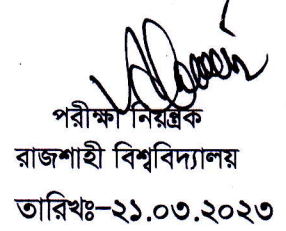 পরীক্ষা নিয়ন্ত্রক
রাজশাহী বিশ্ববিদ্যালয়
তারিখঃ-২১.০৩.২০২৩